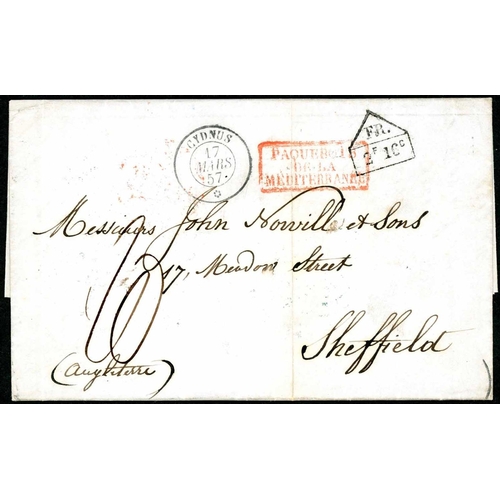 CYDNUS
17
MARS
57
PAQUEBOTS
DE LA
MÉDITERRANÉE
FR.
2F 16c
Messieurs John Nowill et Sons
17, Meadow Street
Sheffield
(Angleterre)